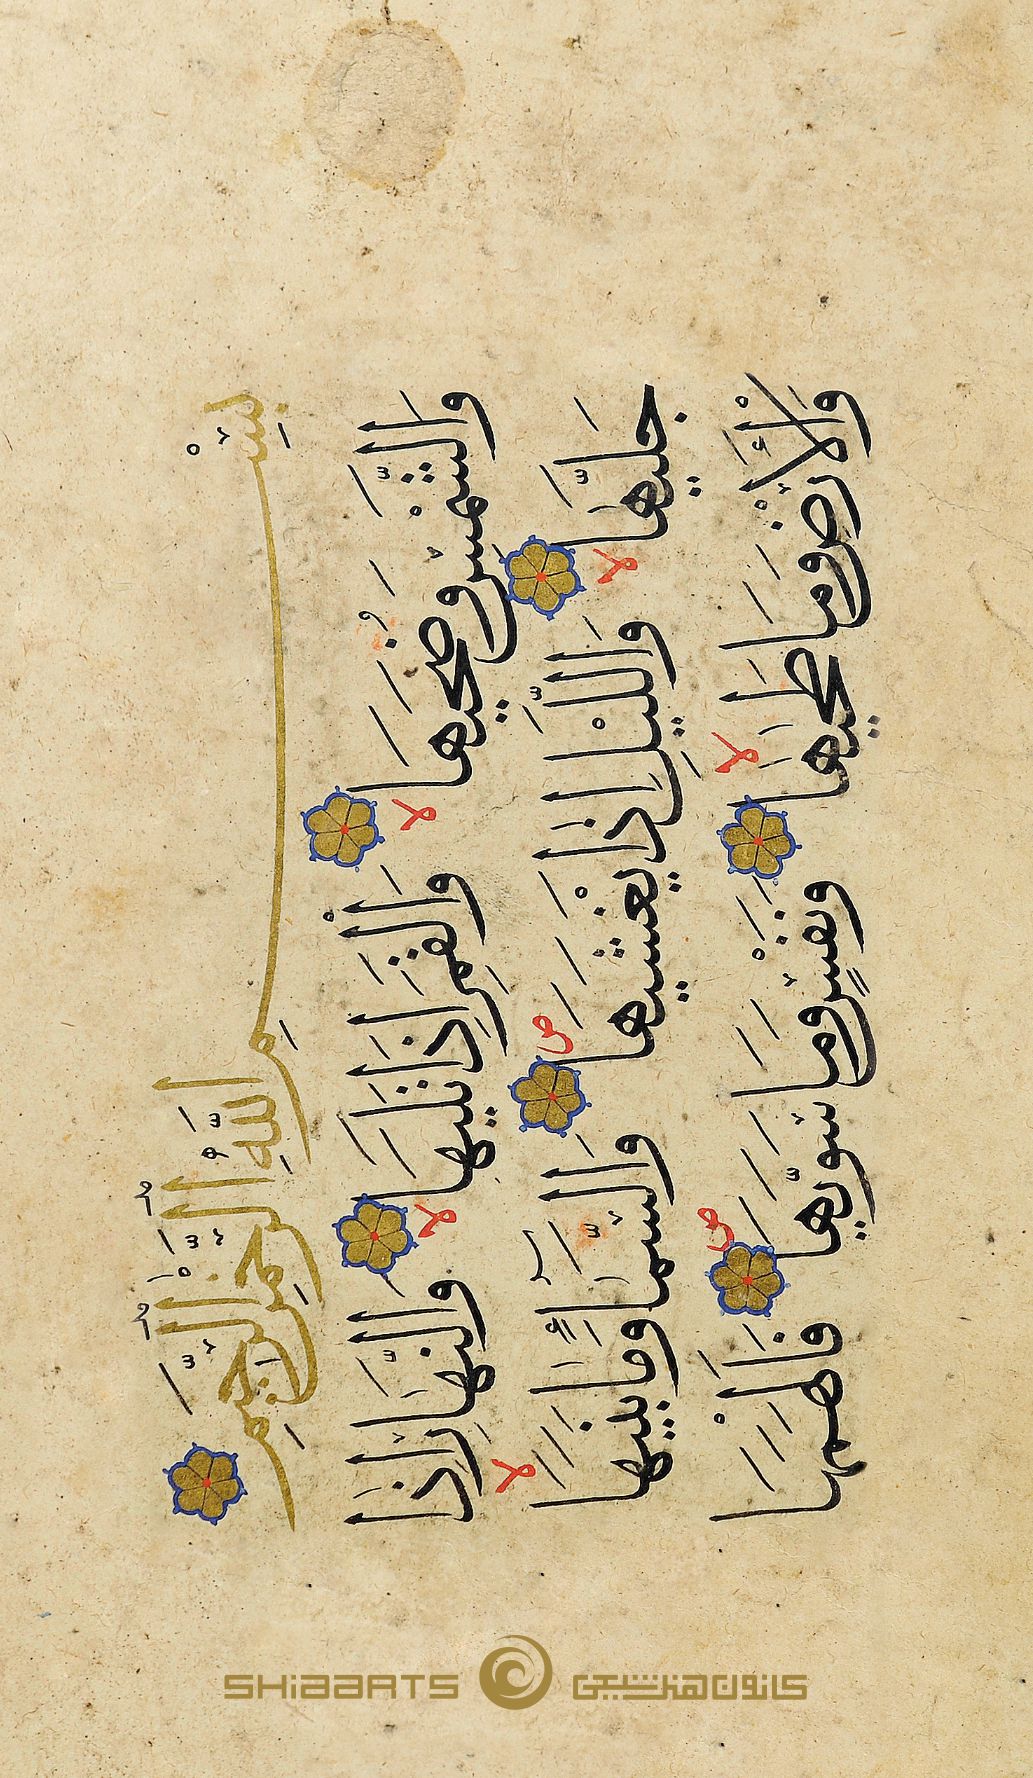 بِسْمِ اللَّهِ الرَّحْمٰنِ الرَّحِيمِ
وَالشَّمْسِ وَضُحَيهَا لا وَالْقَمَرِ اِذَا تَلَيهَا لا وَالنَّهَارِ اِذَا
جَلَّيهَا لا وَاللَّيْلِ اِذَا يَغْشَيهَا ص وَالسَّمَآءِ وَمَا بَنَيهَا لا
وَالْأَرْضِ وَمَا طَحَيهَا لا وَنَفْسٍ وَمَا سَوَّيهَا ص فَاَلْهَمَهَا
SHIAARTS کانون هنر شیعی